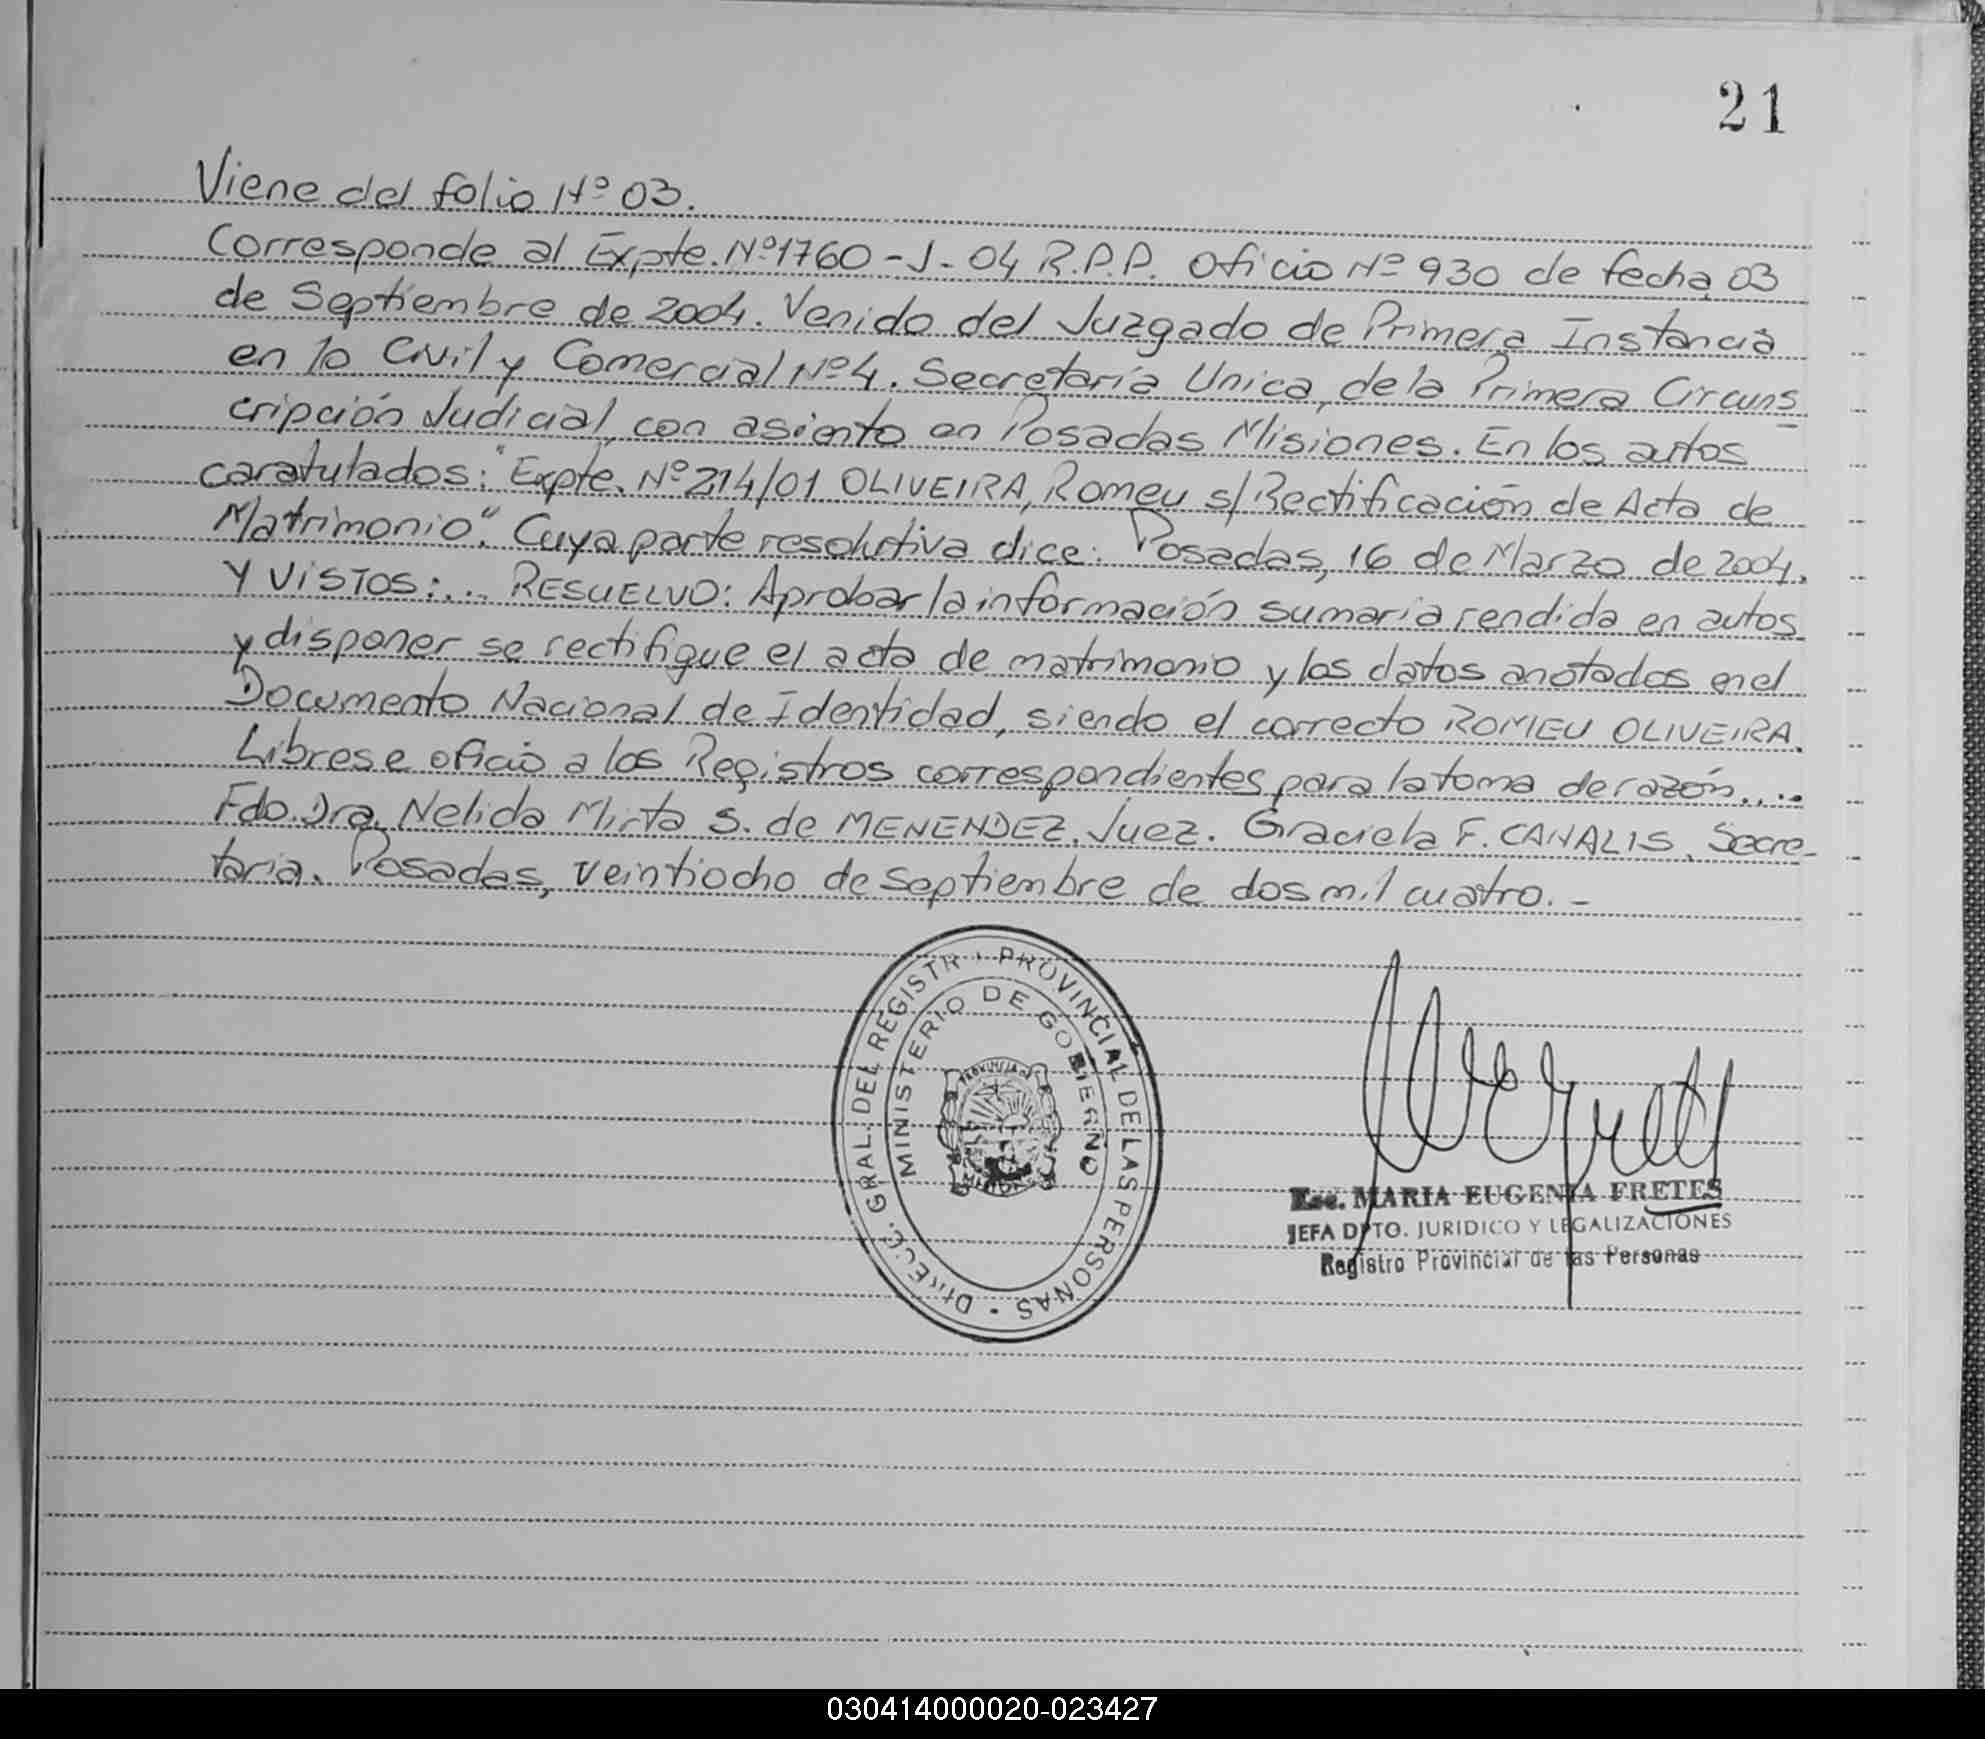 21
Viene del folio Nº 03.
Corresponde al Expte. Nº1760-J-04 R.P.P. Oficio Nº 930 de fecha 03
de Septiembre de 2004. Venido del Juzgado de Primera Instancia
en lo Civil y Comercial Nº4. Secretaría Unica, de la Primera Circuns
cripción Judicial, con asiento en Posadas Misiones. En los autos
caratulados: "Expte. Nº214/01 OLIVEIRA, Romeu s/Rectificación de Acta de
Matrimonio". Cuya parte resolutiva dice: Posadas, 16 de Marzo de 2004.
Y VISTOS:... RESUELVO: Aprobar la información sumaria rendida en autos
y disponer se rectifique el acta de matrimonio y los datos anotados en el
Documento Nacional de Identidad, siendo el correcto ROMEU OLIVEIRA.
Librese oficio a los Registros correspondientes para la toma de razón....
Fdo. Dra. Nelida Mirta S. de MENENDEZ. Juez. Graciela F. CANALIS. Secre-
taria. Posadas, veintiocho de septiembre de dos mil cuatro.-
DIRECC. GRAL. DEL REGISTR PROVINCIAL DE LAS PERSONAS
MINISTERIO DE GOBIERNO
PROVINCIA DE
MISIONES
Esc. MARIA EUGENIA FRETES
JEFA DPTO. JURIDICO Y LEGALIZACIONES
Registro Provincial de las Personas
030414000020-023427